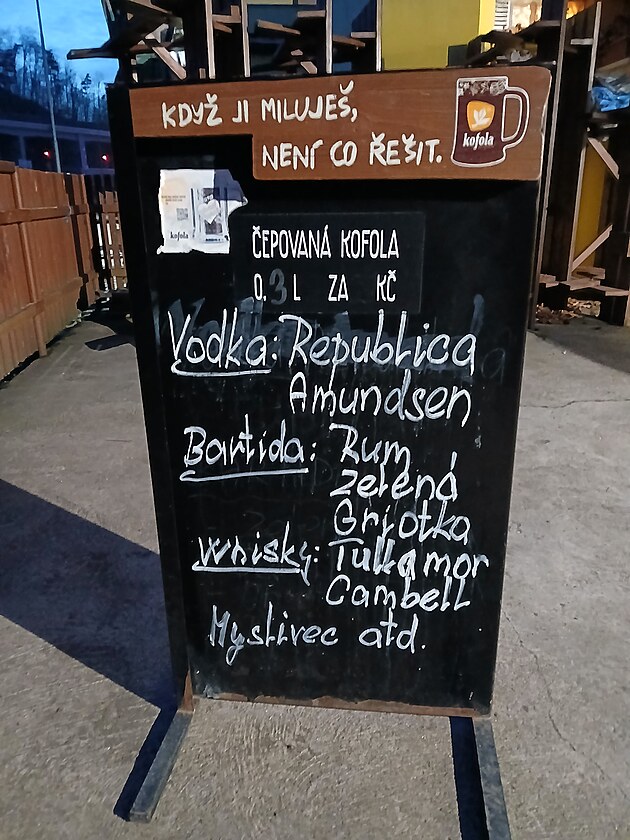 KDYŽ JI MILUJEŠ,
NENÍ CO ŘEŠIT.
kofola
kofola
ČEPOVANÁ KOFOLA
0.3 L ZA KČ
Vodka: Republica
Amundsen
Bartida: Rum
Zelená
Griotka
Whisky: Tullamor
Cambell
Myslivec atd.